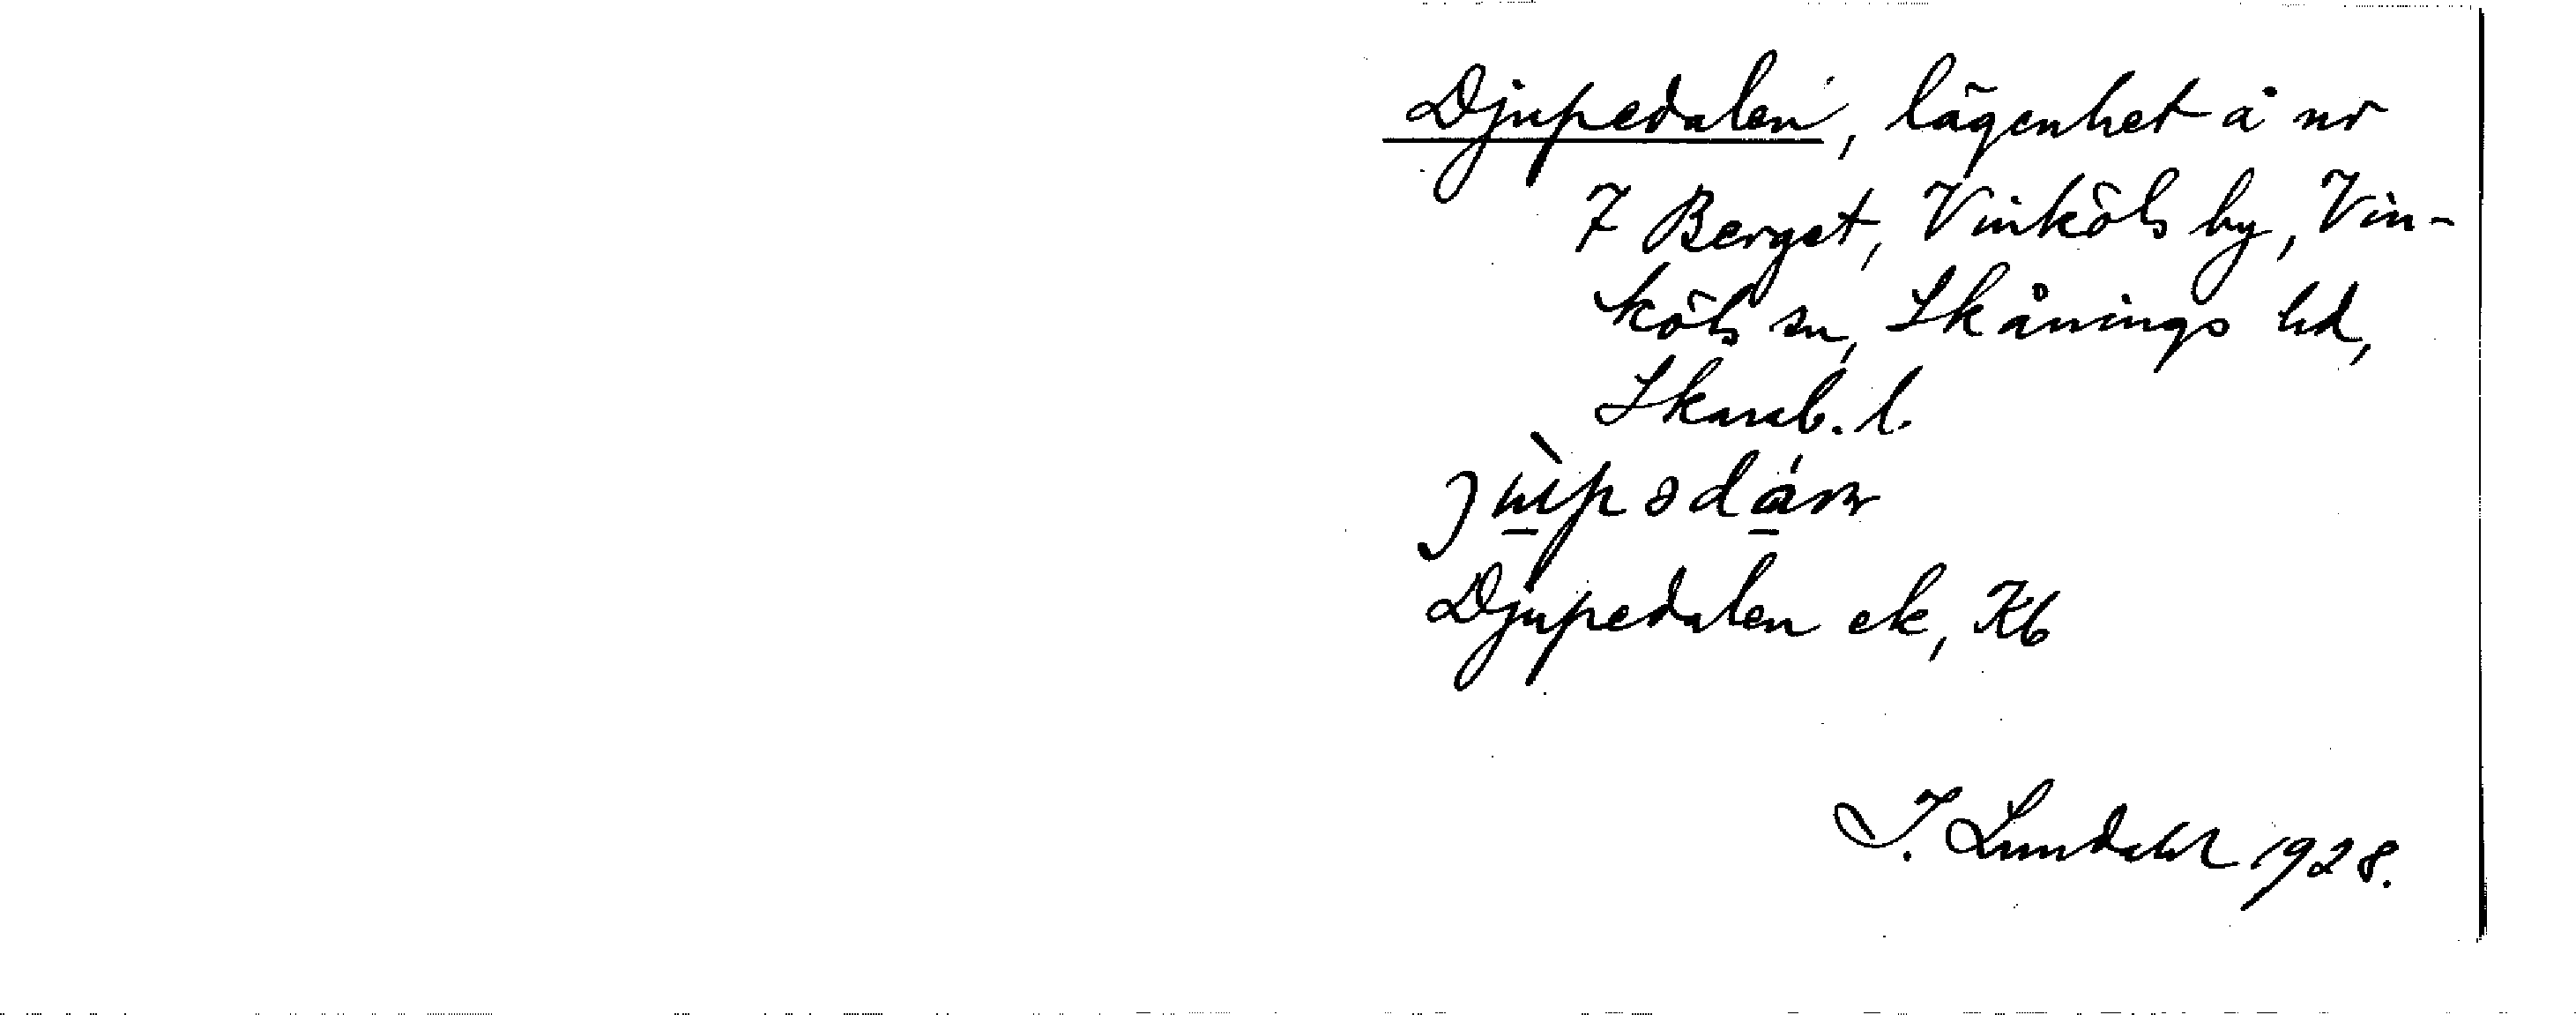 Djupedalen, lägenhet å nr
7 Berget, Vinköls by, Vin-
köls sn, Skånings hd,
Skarab. l.
Djupedalen ek, Kb
I. Lundahl 1928.